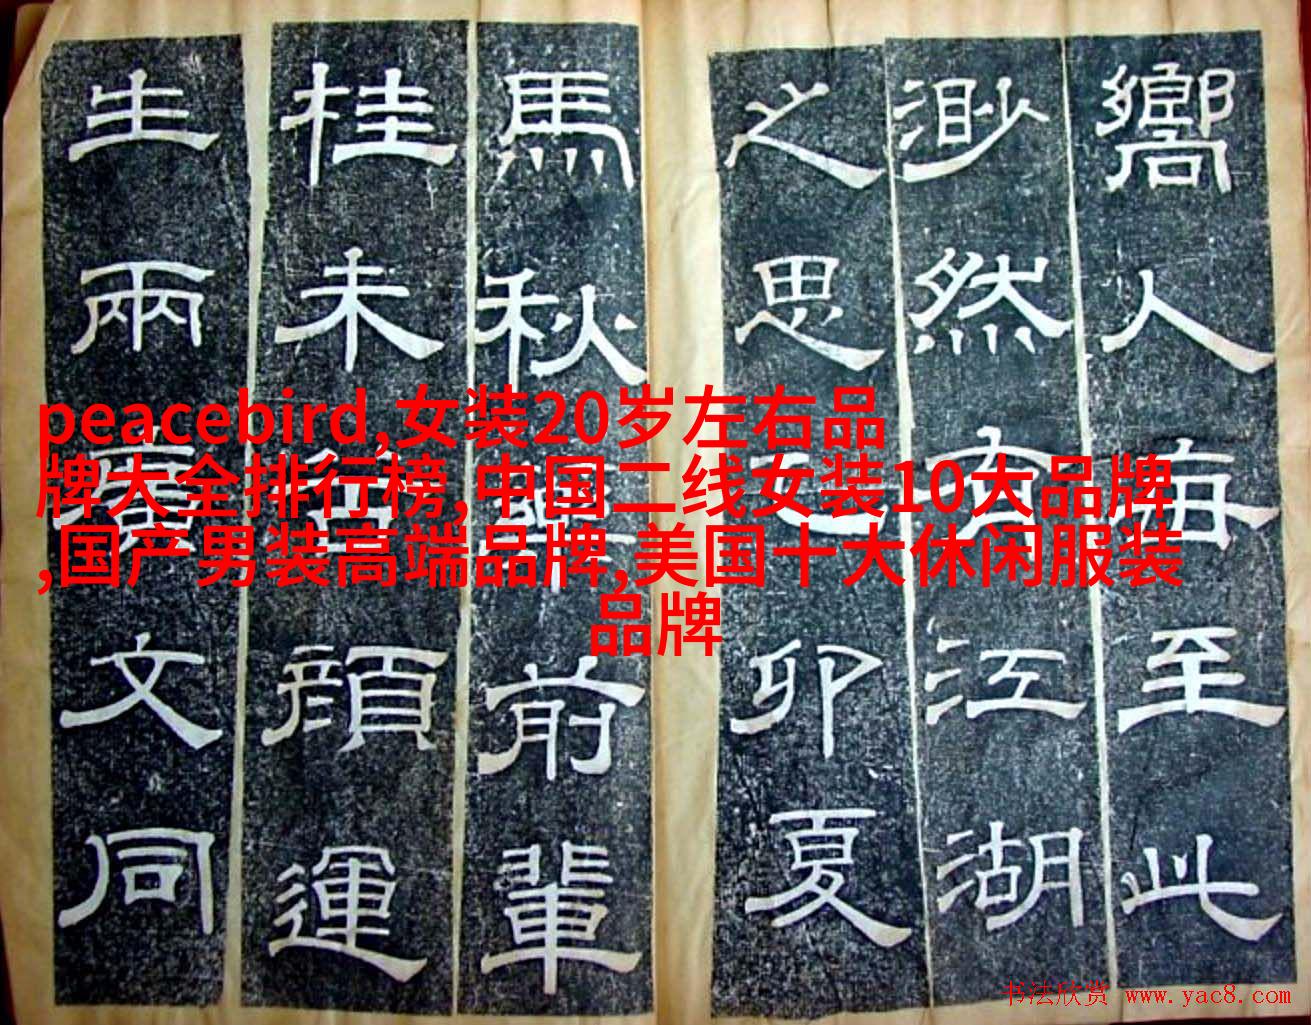 嚮人海至此
渺然有江湖
之思卯夏
馬秋前輩
桂未谷顔運
生兩廣文同
peacebird,女装20岁左右品
牌大全排行榜,中国二线女装10大品牌
,国产男装高端品牌,美国十大休闲服装
品牌
书法欣赏 www.yac8.com